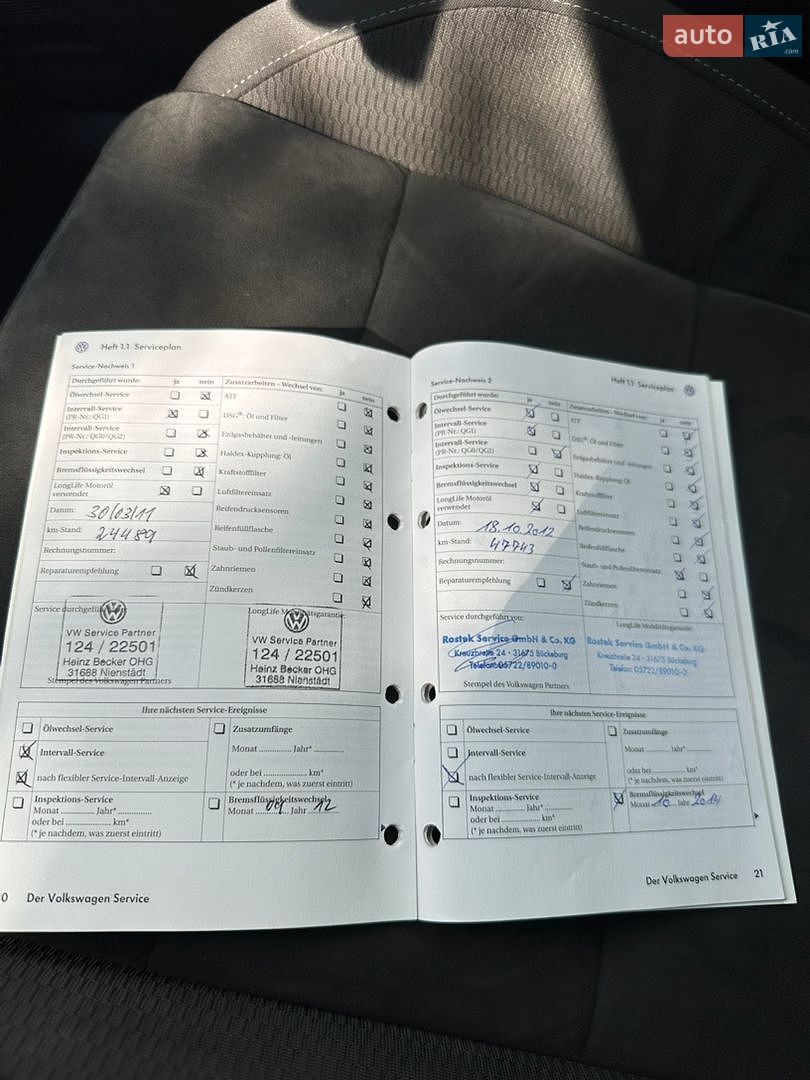 auto RIA.com
Heft 1.1 Serviceplan
Service-Nachweis 1
Durchgeführt wurde: ja nein
Ölwechsel-Service
Intervall-Service
(PR-Nr.: QG1)
Intervall-Service
(PR-Nr.: QG0/QG2)
Inspektions-Service
Bremsflüssigkeitswechsel
LongLife Motoröl
verwendet
Datum: 30/03/11
km-Stand: 24489
Rechnungsnummer:
Reparaturempfehlung
Zusatzarbeiten - Wechsel von: ja nein
ATF
DSG®: Öl und Filter
Erdgasbehälter und -leitungen
Haldex-Kupplung: Öl
Kraftstofffilter
Luftfiltereinsatz
Reifendrucksensoren
Reifenfüllflasche
Staub- und Pollenfiltereinsatz
Zahnriemen
Zündkerzen
Service durchgeführt
VW Service Partner
124 / 22501
Heinz Becker OHG
31688 Nienstädt
Stempel des Volkswagen Partners
LongLife Mobilitätsgarantie:
VW Service Partner
124 / 22501
Heinz Becker OHG
31688 Nienstädt
Ihre nächsten Service-Ereignisse
Ölwechsel-Service
Intervall-Service
nach flexibler Service-Intervall-Anzeige
Inspektions-Service
Monat ............ Jahr* ............
oder bei ............ km*
(* je nachdem, was zuerst eintritt)
Zusatzumfänge
Monat ............ Jahr* ............
oder bei ............ km*
(* je nachdem, was zuerst eintritt)
Bremsflüssigkeitswechsel
Monat 09 Jahr 12
0 Der Volkswagen Service
Heft 1.1 Serviceplan
Service-Nachweis 2
Durchgeführt wurde: ja nein
Ölwechsel-Service
Intervall-Service
(PR-Nr.: QG1)
Intervall-Service
(PR-Nr.: QG0/QG2)
Inspektions-Service
Bremsflüssigkeitswechsel
LongLife Motoröl
verwendet
Datum: 18.10.2012
km-Stand: 47743
Rechnungsnummer:
Reparaturempfehlung
Zusatzarbeiten - Wechsel von: ja nein
ATF
DSG®: Öl und Filter
Erdgasbehälter und -leitungen
Haldex-Kupplung: Öl
Kraftstofffilter
Luftfiltereinsatz
Reifendrucksensoren
Reifenfüllflasche
Staub- und Pollenfiltereinsatz
Zahnriemen
Zündkerzen
Service durchgeführt von:
Rostek Service GmbH & Co. KG
Kreuzbreite 24 · 31675 Bückeburg
Telefon: 05722/89010-0
Stempel des Volkswagen Partners
LongLife Mobilitätsgarantie:
Rostek Service GmbH & Co. KG
Kreuzbreite 24 · 31675 Bückeburg
Telefon: 05722/89010-0
Ihre nächsten Service-Ereignisse
Ölwechsel-Service
Intervall-Service
nach flexibler Service-Intervall-Anzeige
Inspektions-Service
Monat ............ Jahr* ............
oder bei ............ km*
(* je nachdem, was zuerst eintritt)
Zusatzumfänge
Monat ............ Jahr* ............
oder bei ............ km*
(* je nachdem, was zuerst eintritt)
Bremsflüssigkeitswechsel
Monat 10 Jahr 2014
Der Volkswagen Service 21